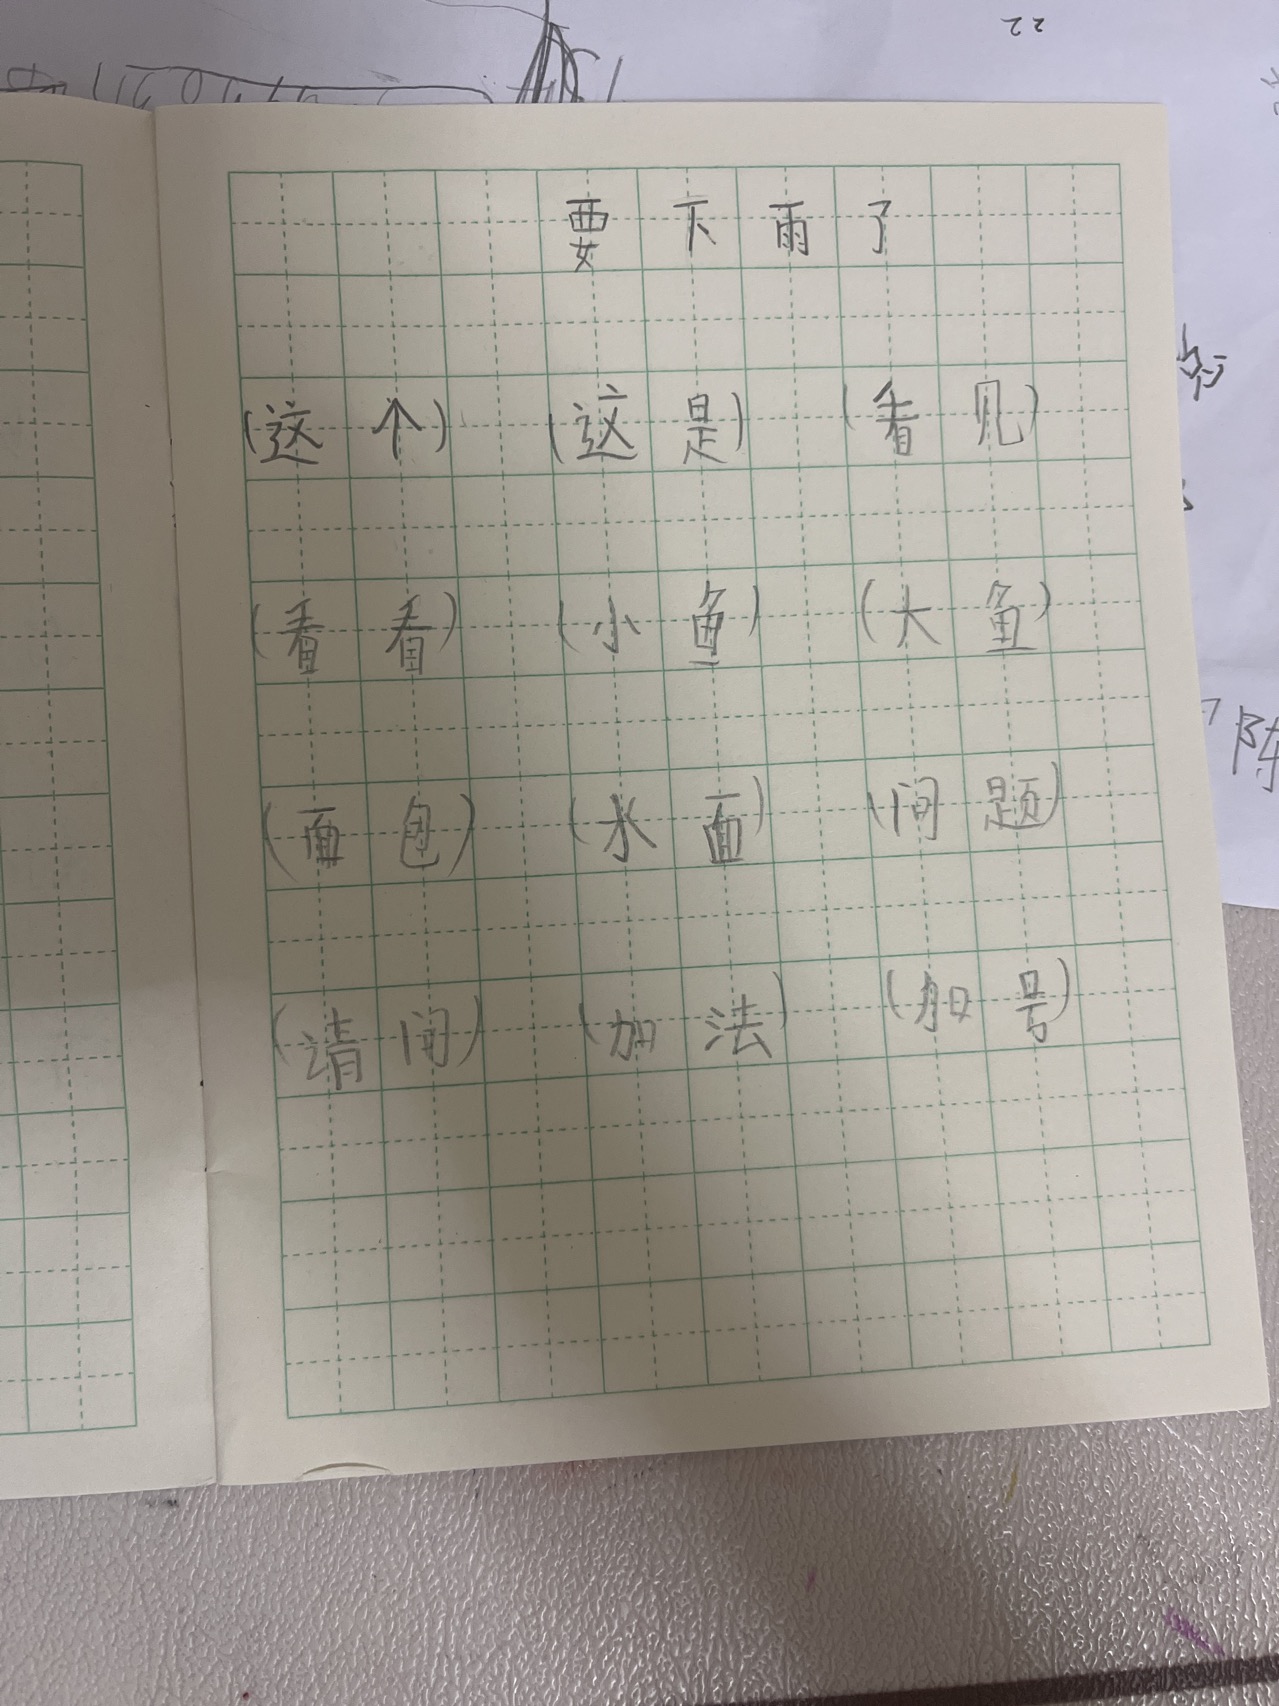 要下雨了
(这个) (这是) (看见)
(看看) (小鱼) (大鱼)
(面包) (水面) (问题)
(请问) (加法) (加号)
陈